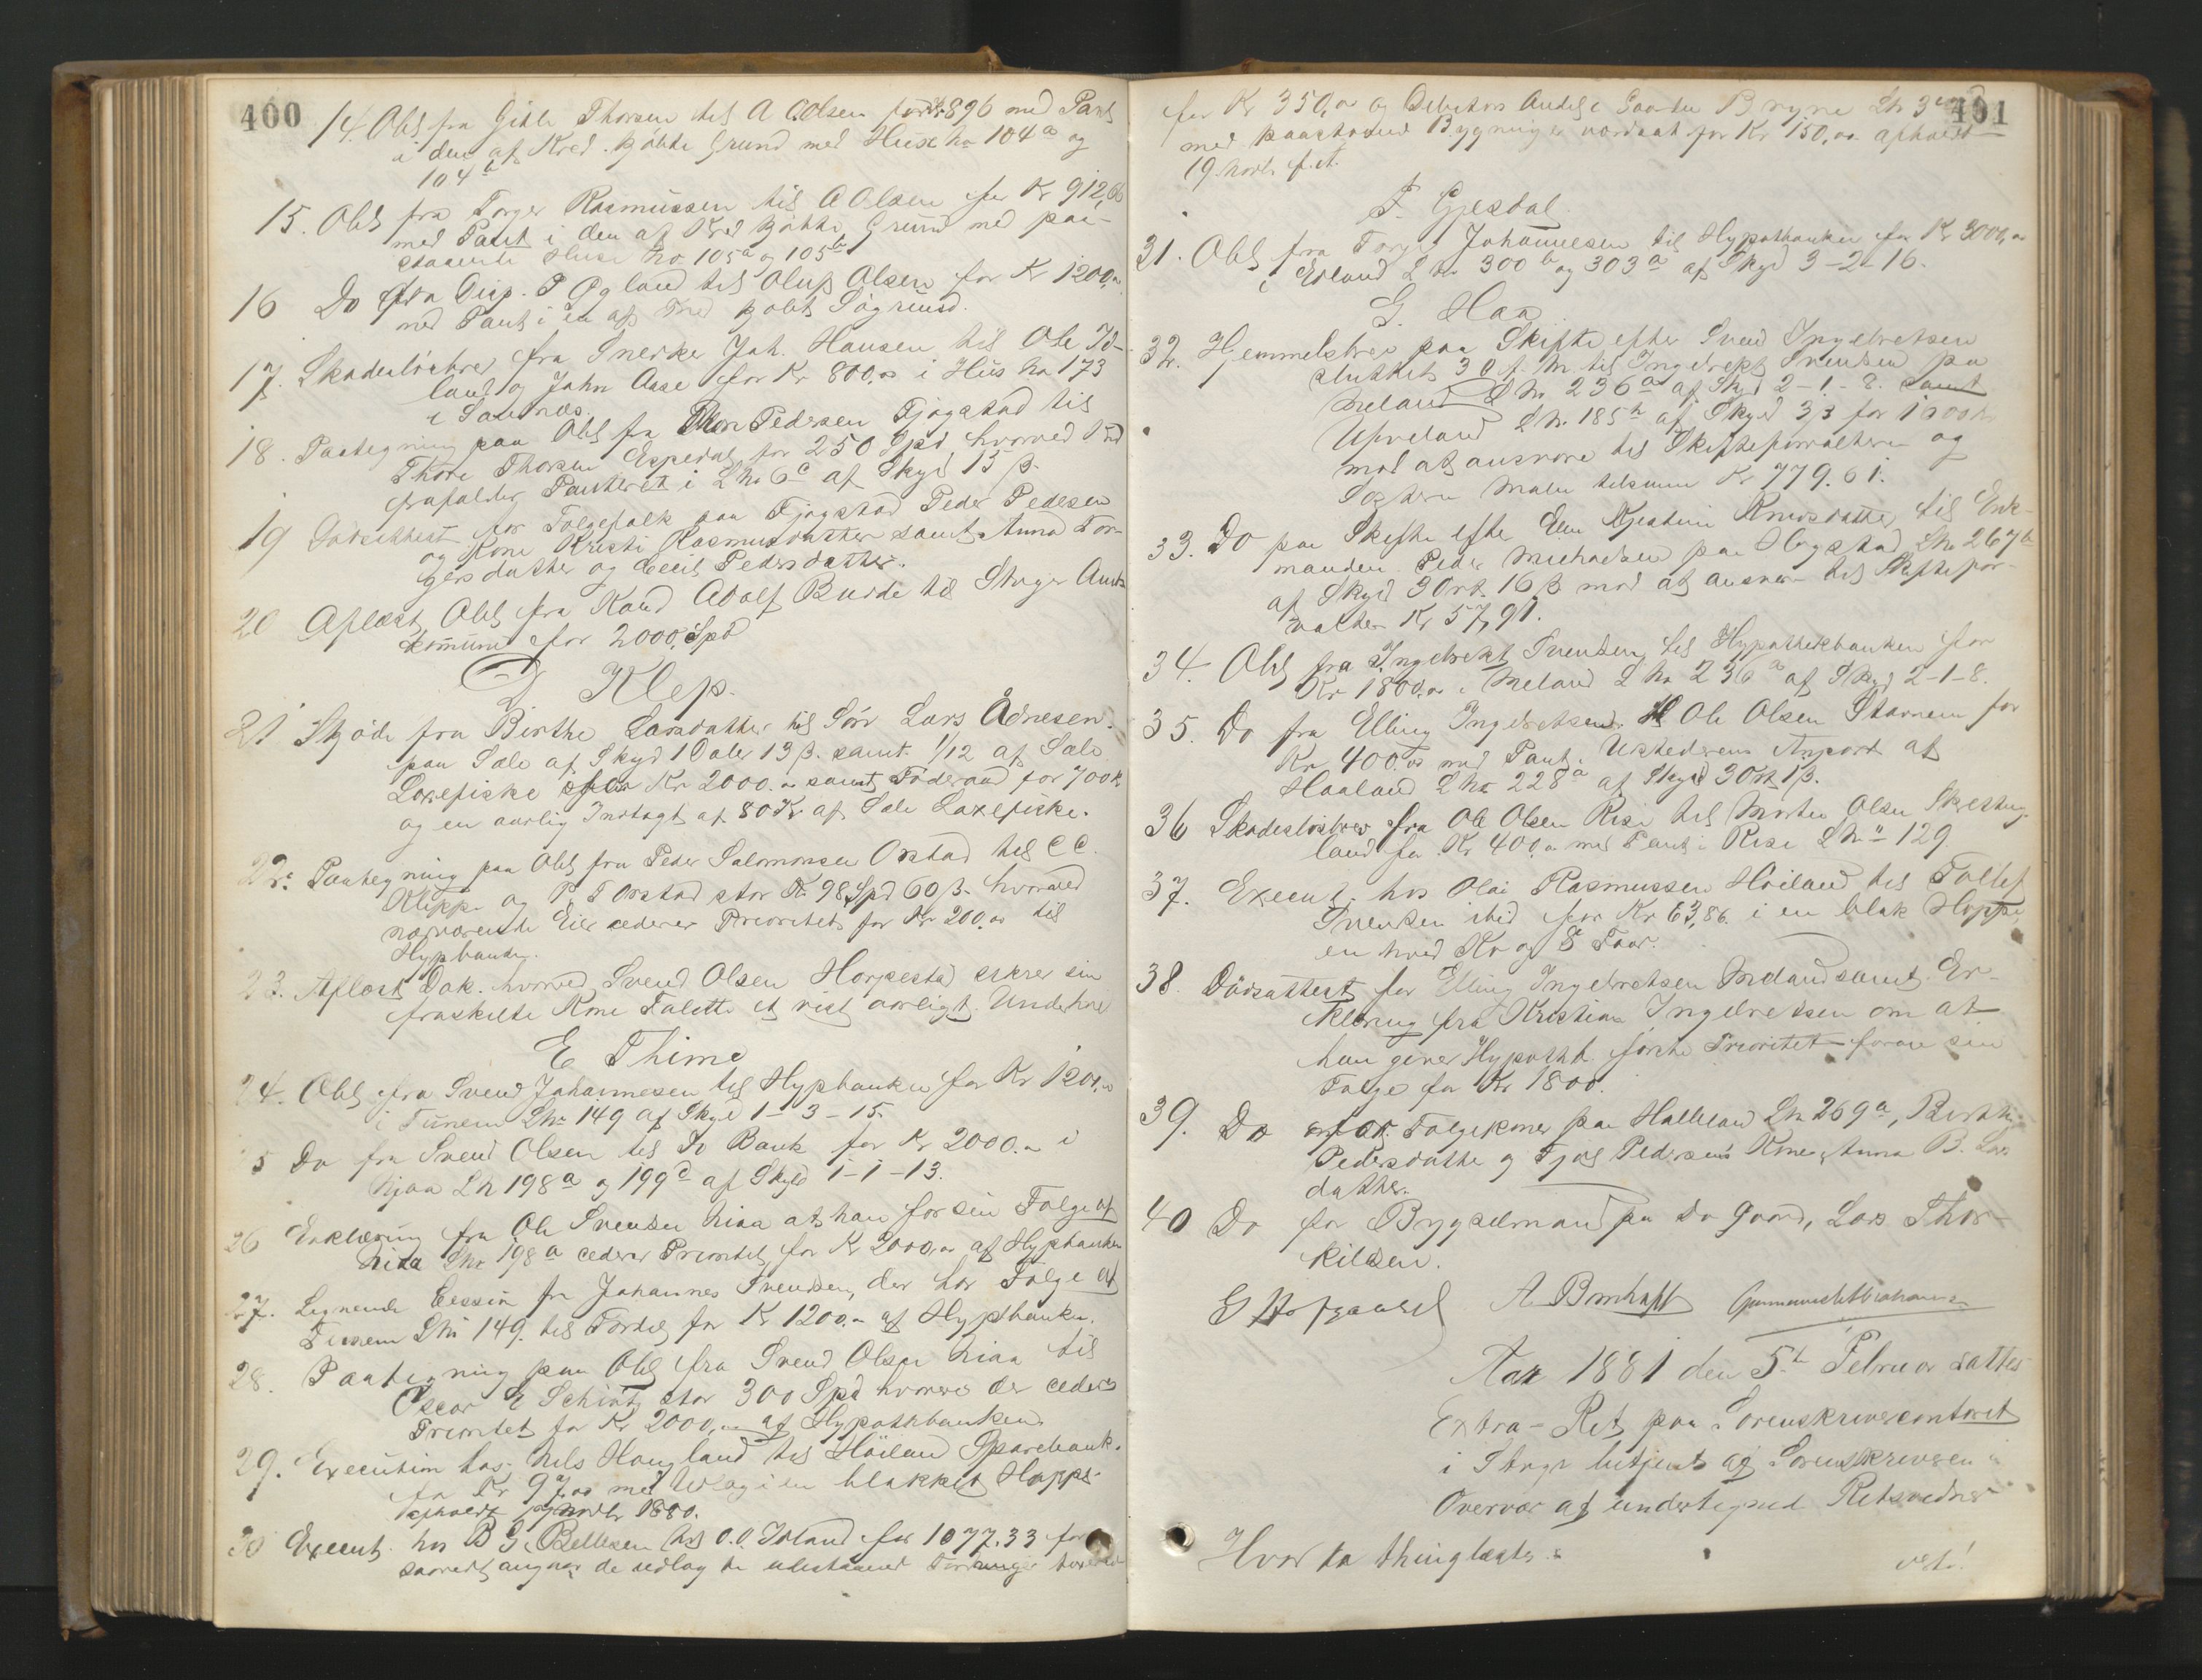 400
14. Obl fra Gitle Thorsen til A Olsen for Kr 896 med Pant
i den af Kred. kjöbte Grund med Huse No 104 a og
104 b
15. Obl fra Torger Rasmussen til A Olsen for Kr 912,
med Pant i den af Kred kjöbte Grund med paa-
staaende Huse No 105 a og 105 b
16 Do fra Disp. P Ogland til Oluf Olsen for Kr 1200,
med Pant i en af Kred kjöbt Grund.
17. Skadeslösbrev fra Snerker Joh. Hansen til Ole
land og John Aase for Kr 800,00 i Hus No 173
i Sandnæs.
18. Paategning paa Obl fra Pedersen Fjögstad til
Thore Thorsen Espedal for 250 Spd hvorved
frafalder Panteret i L No 6 c af Skyld 15 β.
19 Dödsattest for Folgefolk paa Fjögstad Peder Pedersen
og Kone Kristi Rasmusdatter samt Anna Tor-
gersdatter og Cecil Pedersdatter.
20 Aflæst Obl fra Kand Adolf Budde til Stavger Amts
kommune for 2000 Spd
D Klep.
21 Skjöde fra Birthe Larsdatter til Sön Lars Ådnesen
paa Sele af Skyld 1 Daler 13 β. samt 1/12 af Sele
Laxefiske for Kr 2000. samt Föderaad for 700 k
og en aarlig Indtægt af 80 Kr af Sele Laxefiske.
22. Paategning paa Obl fra Peder Salomonsen Orstad til C C.
Kleppe og P. T Orstad stor 98 Spd 60 β. hvorved
nærværende Eier cederer Prioritet for Kr 200,00 til
Hypbanken.
23. Aflæst Dok. hvorved Svend Olsen Horpestad sikrer sin
fraskilte Kone Talette et vist aarligt Underhold
E Thime
24. Obl fra Svend Johannesen til Hypbanken for Kr 1200,
i Tunem L No 149 af Skyld 1-3-15.
5 Do fra Svend Olsen til Do Bank for Kr 2000. i
Njaa L N 198 a og 199 d af Skyld 1-1-13.
26 Erklæring fra Ole Svendsen Niaa at han for sin Folge af
Niaa L No 198 a cederer Prioritet for Kr 2000,00 af Hypbanken
27. Lignende Cession fra Johannes Svendsen, der har Folge af
Tunem L No 149. til Fordel for Kr 1200. af Hypbanken.
28. Paategning paa Obl fra Svend Olsen Niaa til
Oscar E Schiötz stor 300 Spd hvorved der cederes
Prioritet for Kr 2000, af Hypothbanken
29. Execution hos Nels Haugland til Höiland Sparebank.
for Kr 97,00 med Udlæg i en blakket Hoppe
afholdt 19 Novbr 1880.
30 Execut. hos B G. Bellesen til O.O. Inland for 1077,33 for
saavidt angaar de udlagte udestaaende Fordringer
401
for Kr 350,00 og Debitors Andel i Gaarden Bryne L N 3
med paastaaende Bygninger værdsat for Kr 150,00. afholdt
19 Novb. f. A.
F. Gjesdal
31. Obl fra Torger Johannesen til Hypothbanken for Kr 3000,
i Edland L No 300 b og 303 a af Skyld 3-2-16.
G. Haa
32. Hjemmelsbrev paa Skifte efter Svend Ingebretsen
sluttet 30 f. M. til Ingebrekt Svendsen paa
Meland L No. 236 a af Skyld 2-1-8. samt
Upveland L N. 185 af Skyld 33 for 1600
mod at ansvare til Skifteforvalteren og
Malene tilsammen Kr 779.61.
33. Do paa Skifte efter Elen Kjestine Knudsdatter til Enke-
manden Peder Michaelsen paa Hogstad L No 267 b
af Skyld 3 Ort. 16 β mod at ansvare til Skiftefor-
valteren Kr 57,91.
34. Obl fra Ingebrekt Svendsen til Hypothekbanken for
Kr 1800,00 i Meland L No 236 a af Skyld 2-1-8.
35. Do fra Elling Ingebretsen til Ole Olsen Stavnem for
Kr 400.00 med Pant i Udstederens Anpart af
Haaland L No 228 a af Skyld 3 Ort 1 β.
36 Skadeslösbrev fra Ole Olsen Risa til Morten Olsen
land for Kr 400,00 med Pant i Risa L No 129
37. Execut. hos Olai Rasmussen Höiland til Tollef
Svendsen ibid for Kr 63,86 i en blak Hoppe,
en hvid Ko og 8 Faar.
38. Dödsattest for Elling Ingebretsen Meland samt Er-
klæring fra Kristian Ingebretsen om at
han giver Hypothb. förste Prioritet foran sin
Folge for Kr 1800.
39. Do for Folgekoner paa Halleland L N 269 a, Birthe
Pedersdatter og Pedersens Kone, Anna B. Lars
datter.
40 Do for Bygselmand paa do Gaard, Lars Thor-
kildsen.
A Bernhoft
Aar 1881 den 5te Februar sattes
Extra-Ret paa Sorenskrivercontoret
i Stavgr betjent af Sorenskriveren i
Overvær af undertegnede Retsvidner
Hvor da thinglæstes: